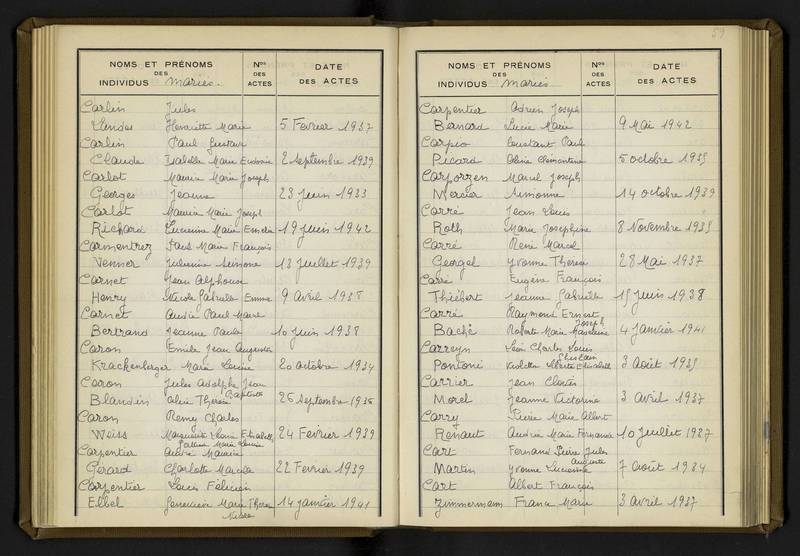 NOMS ET PRÉNOMS
DES
INDIVIDUS Mariés.
Nos
DES
ACTES
DATE
DES ACTES
Carlin Jules
Landes Henriette Marie 5 Fevrier 1937
Carlin Paul Gustave
Claude Isabelle Marie 2 Septembre 1939
Carlot Maurice Marie Joseph
Georges Jeanne 23 Juin 1933
Carlot Maurice Marie Joseph
Richard Lucienne Marie 19 Juin 1942
Carmentrez Paul Marie François
Venner Julienne 13 Juillet 1939
Carnet Jean Alphonse
Henry Nicole Gabrielle Emma 9 Avril 1938
Carnet André Paul
Bertrand Jeanne Paule 10 Juin 1938
Caron Emile Jean Augustin
Krackenberger Marie Louise 20 octobre 1934
Caron Jules Adolphe Jean
Baptiste
Blandin Alice Thérèse 26 Septembre 1936
Caron Remy Charles
Weiss Marguerite Marie Elisabeth 24 Fevrier 1939
Marie Louise
Carpentier André Maurice
Gérard Charlotte 22 Fevrier 1939
Carpentier Louis Félicien
Elbel Geneviève Marie Thérèse 14 janvier 1941
59
NOMS ET PRÉNOMS
DES
INDIVIDUS Mariés.
Nos
DES
ACTES
DATE
DES ACTES
Carpentier Adrien Joseph
Bernard Lucie Marie 9 Mai 1942
Carpio Constant Paul
Picard Clementine 5 octobre 1935
Carpozzen Marcel Joseph
Mercier Simonne 14 octobre 1939
Carré Jean Louis
Roth Marie Josephine 8 Novembre 1935
Carré René Marcel
Georgel Yvonne Thérèse 28 Mai 1937
Carré Eugène François
Thiébert Jeanne Gabrielle 15 Juin 1938
Carré Raymond Ernest
Joseph
Baché Roberte Marie 4 Janvier 1941
Carreyn Léon Charles Louis
Ghislain
Pontoni Violette Elisabeth 3 Août 1935
Carrier Jean
Morel Jeanne Victorine 3 Avril 1937
Carry Pierre Marie Albert
Renaut Andrée Marie Fernande 10 Juillet 1937
Cart Fernand Pierre Jules
Auguste
Martin Yvonne Lucienne 7 Août 1934
Cart Albert François
Zimmermann France Marie 3 Avril 1937